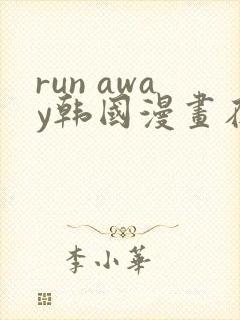 run awa
y韩國漫畫在
李小華